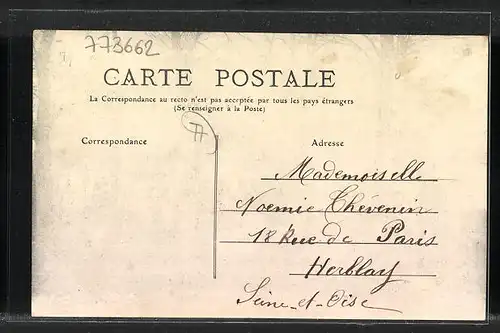 773662
CARTE POSTALE
La Correspondance au recto n'est pas acceptée par tous les pays étrangers
(Se renseigner à la Poste)
Correspondance
Adresse
Mademoiselle
Noemie Thévenin
18 Rue de Paris
Herblay
Seine-et-Oise